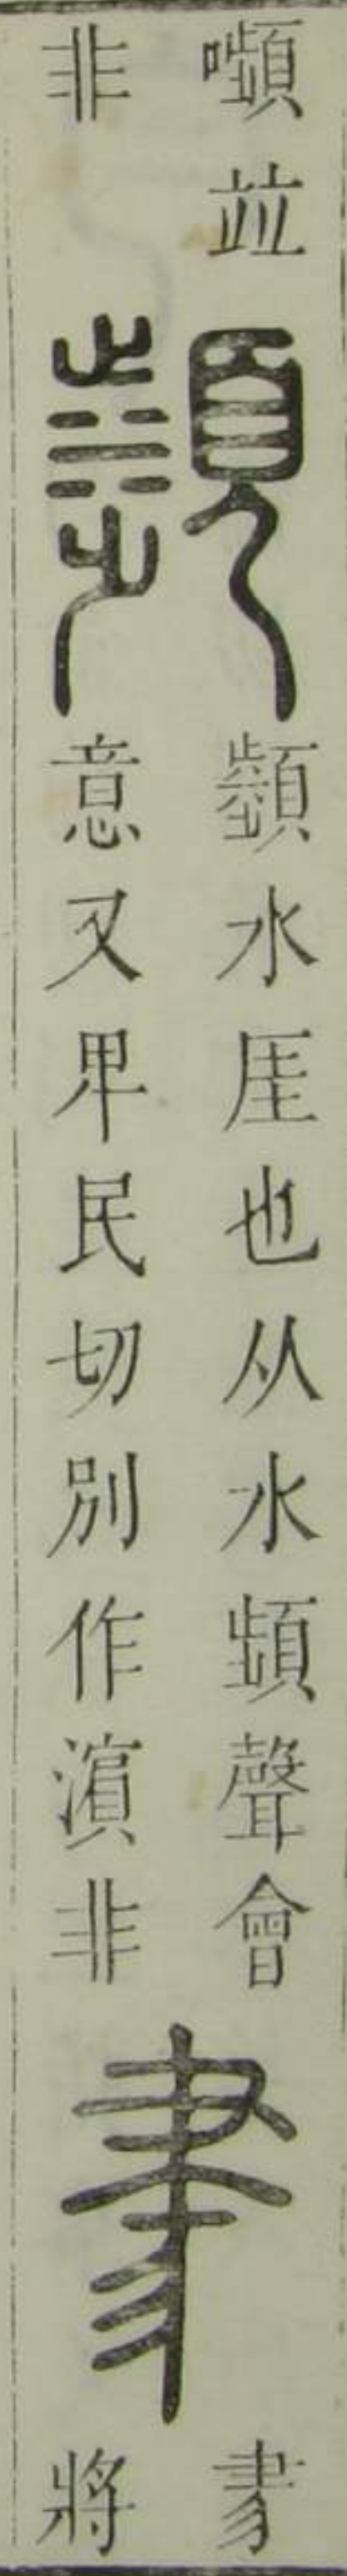 嚬竝
非
瀕
瀕水厓也从水頻聲會
意又卑民切別作濵非
𦘔
𦘔
將